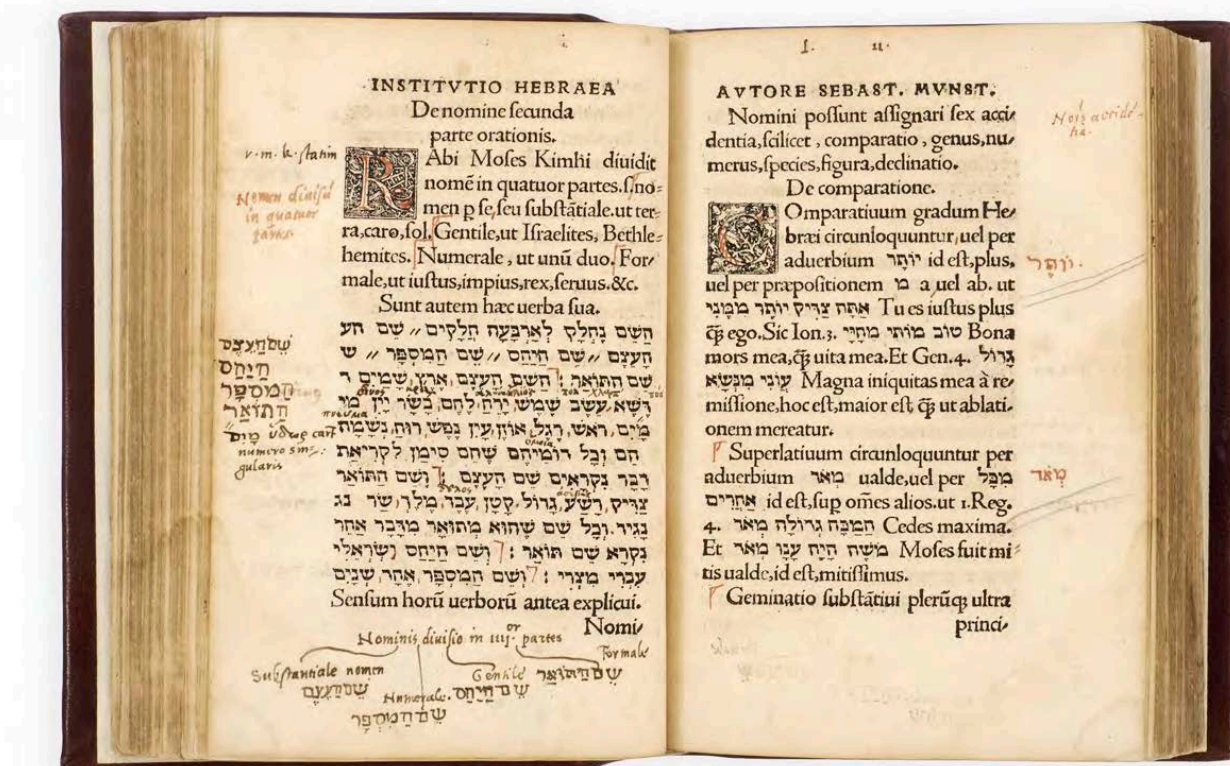 INSTITVTIO HEBRAEA
De nomine ſecunda
parte orationis.
v. m. k. ſtatim
RAbi Moſes Kimhi diuidit
nomē in quatuor partes. ſ. no-
men p ſe, ſeu ſubſtātiale. ut ter-
Nomen
in quatuor
partes
ra, caro, ſol. Gentile, ut Iſraelites, Bethle-
hemites. Numerale, ut unū duo. For-
male, ut iuſtus, impius, rex, ſeruus. &c.
Sunt autem hæc uerba ſua.
הַשֵּׁם נֶחְלָק לְאַרְבָּעָה חֲלָקִים // שֵׁם הע
הָעֶצֶם // שֵׁם הַיַּחַס // שֵׁם הַמִּסְפָּר // ש
שֵׁם הַתּוֹאַר : הַשֵּׁם הָעֶצֶם, אֶרֶץ, שָׁמַיִם ר
דֶּשֶׁא, עֵשֶׂב שֶׁמֶשׁ, יָרֵחַ, לֶחֶם, בָּשָׂר יַיִן מי
מַיִם, רֹאשׁ, רֶגֶל, אוֹזֶן, עַיִן נֶפֶשׁ, רוּחַ, נְשָׁמָה
הֵם וְכָל דּוֹמֵיהֶם שֶׁהֵם סִימָן לִקְרִיאַת
דָּבָר נִקְרָאִים שֵׁם הָעֶצֶם : וְשֵׁם הַתּוֹאַר
צַדִּיק, רָשָׁע, גָּדוֹל, קָטָן, עֶבֶד, מֶלֶךְ, שַׂר נג
נָגִיד, וְכָל שֵׁם שֶׁהוּא מְתוֹאָר מִדָּבָר אַחֵר
נִקְרָא שֵׁם תּוֹאַר : וְשֵׁם הַיַּחַס יִשְׂרְאֵלִי
עִבְרִי מִצְרִי : וְשֵׁם הַמִּסְפָּר, אֶחָד, שְׁנַיִם
שם העצם
היחס
המספר
התואר
מים ὕδωρ caret
numero sin-
gularis
πνεῦμα
Senſum horū uerborū antea explicui.
Nomi-
Nominis diuisio in iiij.or partes
Substantiale nomen
שם העצם
Numerale.
שם המספר
Gentile
שם היחס
Formale
שם התואר
I. II.
AVTORE SEBAST. MVNST.
Nomini poſſunt aſſignari ſex acci-
dentia, ſcilicet, comparatio, genus, nu-
merus, ſpecies, figura, declinatio.
De comparatione.
COmparatiuum gradum He-
bræi circunloquuntur, uel per
aduerbium יוֹתֵר id eſt, plus,
יוֹתֵר.
uel per præpoſitionem מ a, uel ab. ut
אַתָּה צַדִּיק יוֹתֵר מִמֶּנִּי Tu es iuſtus plus
q̃ꝫ ego. Sic Ion. 3. טוֹב מוֹתִי מֵחַיָּי Bona
mors mea, q̃ꝫ uita mea. Et Gen. 4. גָּדוֹל
עֲוֹנִי מִנְּשֹׂא Magna iniquitas mea à re-
miſſione, hoc eſt, maior eſt q̃ꝫ ut ablati-
onem mereatur.
Superlatiuum circunloquuntur per
aduerbium מְאֹד ualde, uel per מִכָּל
מְאֹד
אֲחֵרִים id eſt, ſup om̃es alios. ut 1. Reg.
4. הַמַּכָּה גְּדוֹלָה מְאֹד Cedes maxima.
Et מֹשֶׁה הָיָה עָנָו מְאֹד Moſes fuit mi-
tis ualde, id eſt, mitiſſimus.
Geminatio ſubſtātiui plerūq; ultra
princi-